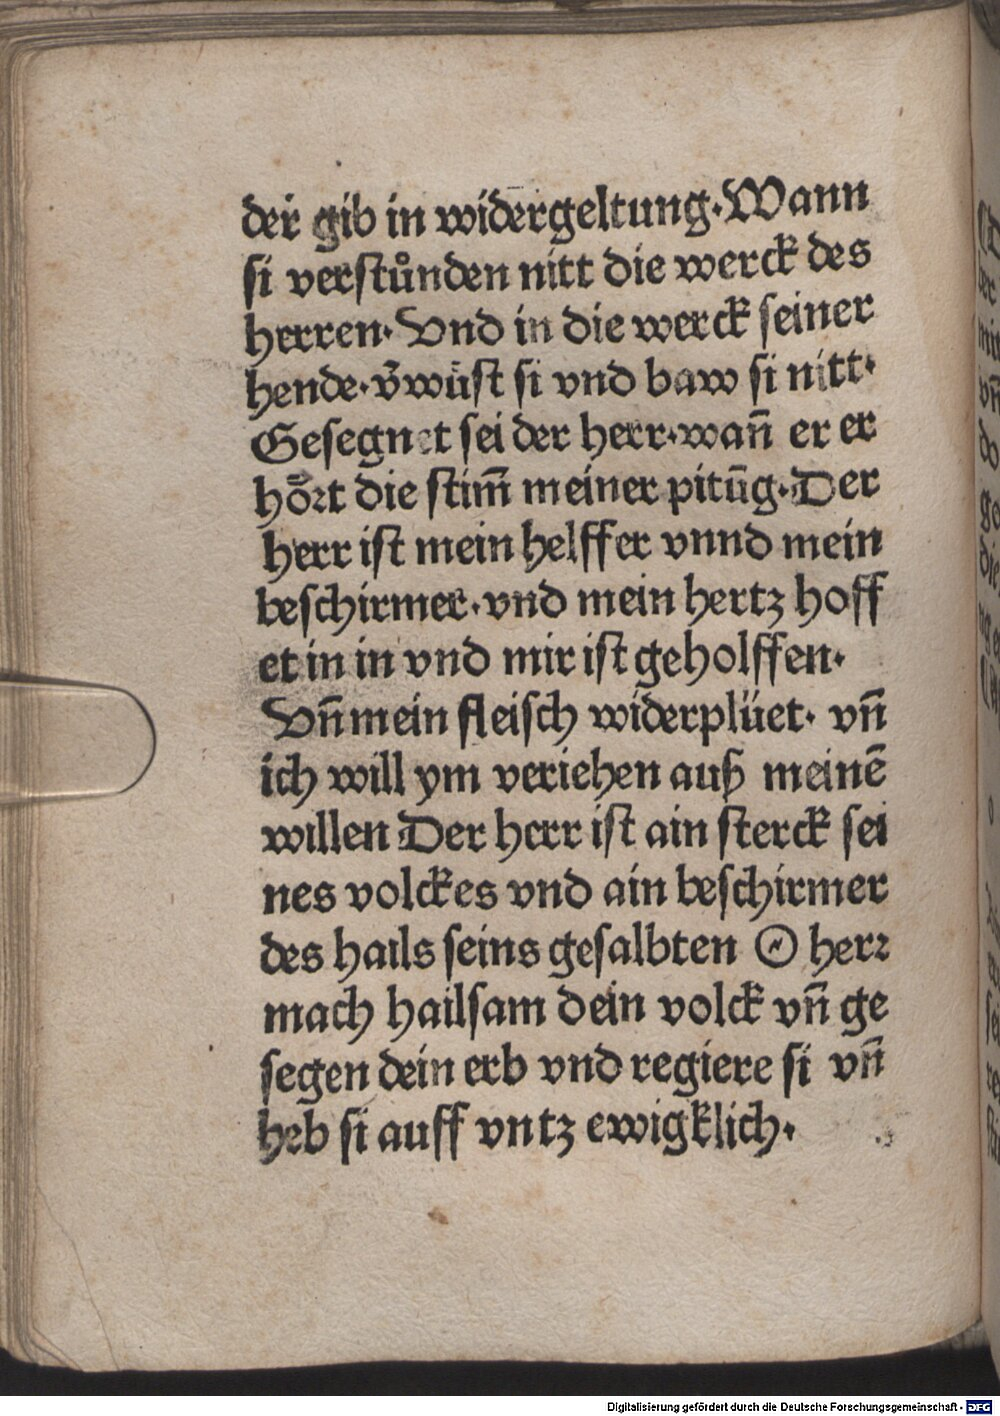 der gib in widergeltung·Wann
si verstůnden nitt die werck des
herren·Vnd in die werck seiner
hende·v̄wüst si vnd baw si nitt·
Gesegnet sei der herr·wañ er er
hoͤꝛt die stim̄ meiner pitūg·Der
herr ist mein helffer vnnd mein
beschirmer·vnd mein hertz hoff
et in in vnd mir ist geholffen·
Vñ mein fleisch widerplüet· vñ
ich will ym veriehen auß meinē
willen Der herr ist ain sterck sei
nes volckes vnd ain beschirmer
des hails seins gesalbten O herꝛ
mach hailsam dein volck vñ ge
segen dein erb vnd regiere si vñ
heb si auff vntz ewigklich·
Digitalisierung gefördert durch die Deutsche Forschungsgemeinschaft - DFG